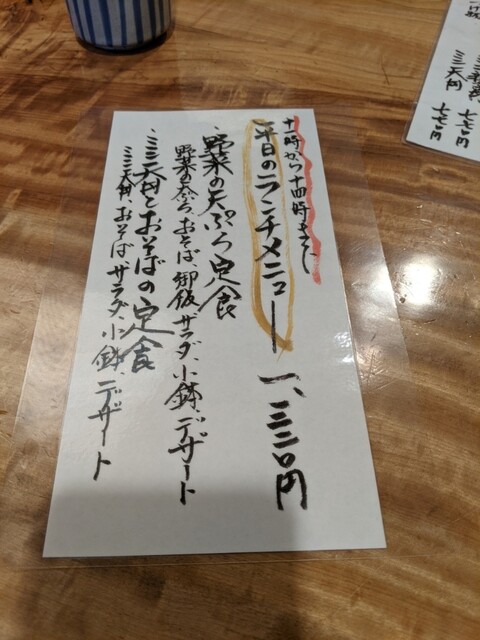 十一時から十四時まで
平日のランチメニュー 一、三二〇円
野菜の天ぷら定食
野菜の天ぷら、おそば、御飯、サラダ、小鉢、デザート
ミニ天丼とおそばの定食
ミニ天丼、おそば、サラダ、小鉢、デザート
ミニ天丼 七七〇円